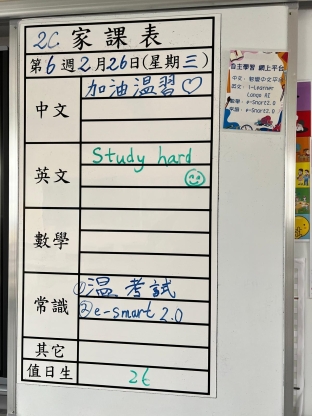 2C 家課表
第6週2月26日(星期三)
中文
加油溫習♡
英文
Study hard
☺
數學
常識
①溫考試
②e-smart 2.0
其它
值日生
26
自主學習 網上平台
中文：
英文：i-Learner
數學：e-Smart2.0
常識：e-Smart2.0